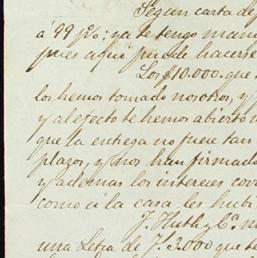 Segun carta de
á 99 p%; ya te tengo man
pues aqui puede hacerse
Los $10.000. que
los hemos tomado nosotros, y
y al efecto te hemos abierto
que la entrega no fuere tan
plazos, y nos han firmado
y ademas los intereses co
como á la casa les hubi
J. Huth y Cª. n
una Letra de J. 3.000 que t